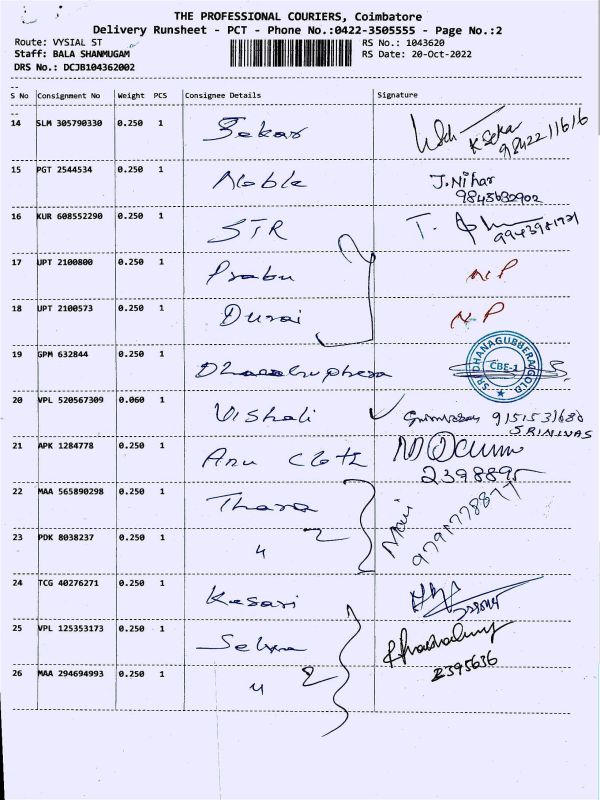 THE PROFESSIONAL COURIERS, Coimbatore
Delivery Runsheet - PCT - Phone No.:0422-3505555 - Page No.:2
Route: VYSIAL ST
RS No.: 1043620
Staff: BALA SHANMUGAM
RS Date: 20-Oct-2022
DRS No.: DCJB104362002
S No Consignment No Weight PCS Consignee Details Signature
14 SLM 305790330 0.250 1 Sekar K Seka 98422 11616
15 PGT 2544534 0.250 1 Noble J.Nihar
9845630902
16 KUR 608552290 0.250 1 STR T.
17 UPT 2100800 0.250 1 Prabu N.P
18 UPT 2100573 0.250 1 Durai N.P
19 GPM 632844 0.250 1 SRI DHANAGUBBERA GOLD CBE-1
20 VPL 520567309 0.060 1 Vishali 9151531680
SRINIVAS
21 APK 1284778 0.250 1 Anu Cloth
2398895
22 MAA 565890298 0.250 1 Thara Mani
9791778877
23 PDK 8038237 0.250 1 4 2
24 TCG 40276271 0.250 1 Kesari
25 VPL 125353173 0.250 1 Selva
2395636
26 MAA 294694993 0.250 1 4 2